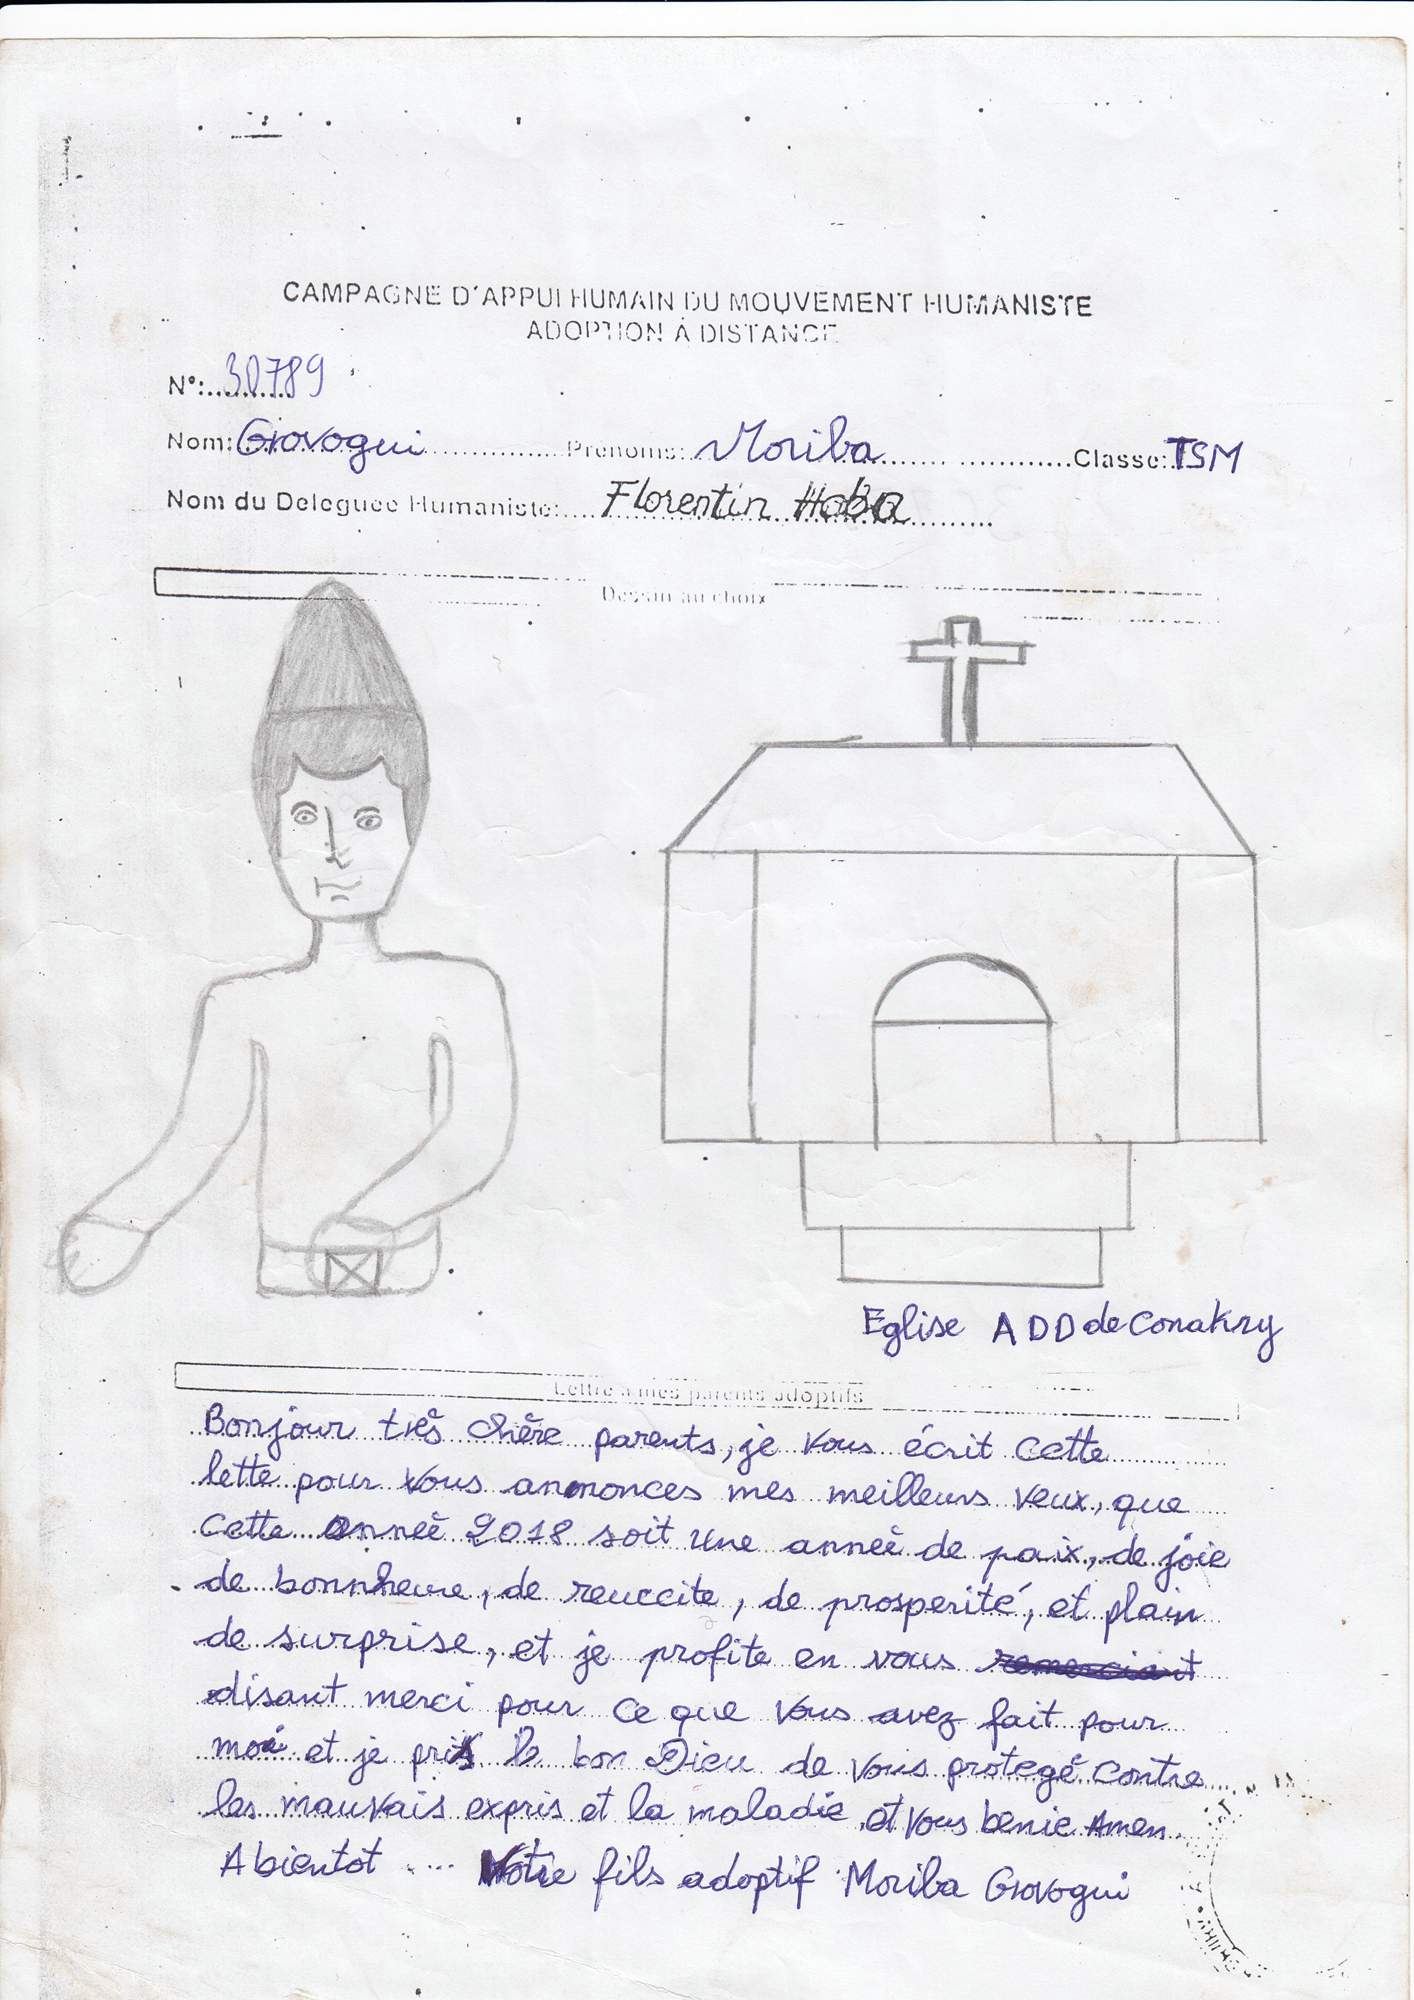 CAMPAGNE D'APPUI HUMAIN DU MOUVEMENT HUMANISTE
ADOPTION À DISTANCE
N°: 30789
Nom: Grovogui Prénoms: Moriba Classe: TSM
Nom du Deleguée Humaniste: Florentin Haba
Dessin au choix
Eglise ADD de Conakry
Lettre à mes parents adoptifs
Bonjour très chère parents, je vous écrit cette
lette pour vous annonces mes meilleurs veux, que
cette anneé 2018 soit une anneé de paix, de joie
de bonnheure, de reuccite, de prosperité, et plain
de surprise, et je profite en vous remerciant
disant merci pour ce que vous avez fait pour
moi et je pris le bon Dieu de vous protegé contre
les mauvais expris et la maladie et vous benie Amen.
A bientot .... Votre fils adoptif Moriba Grovogui